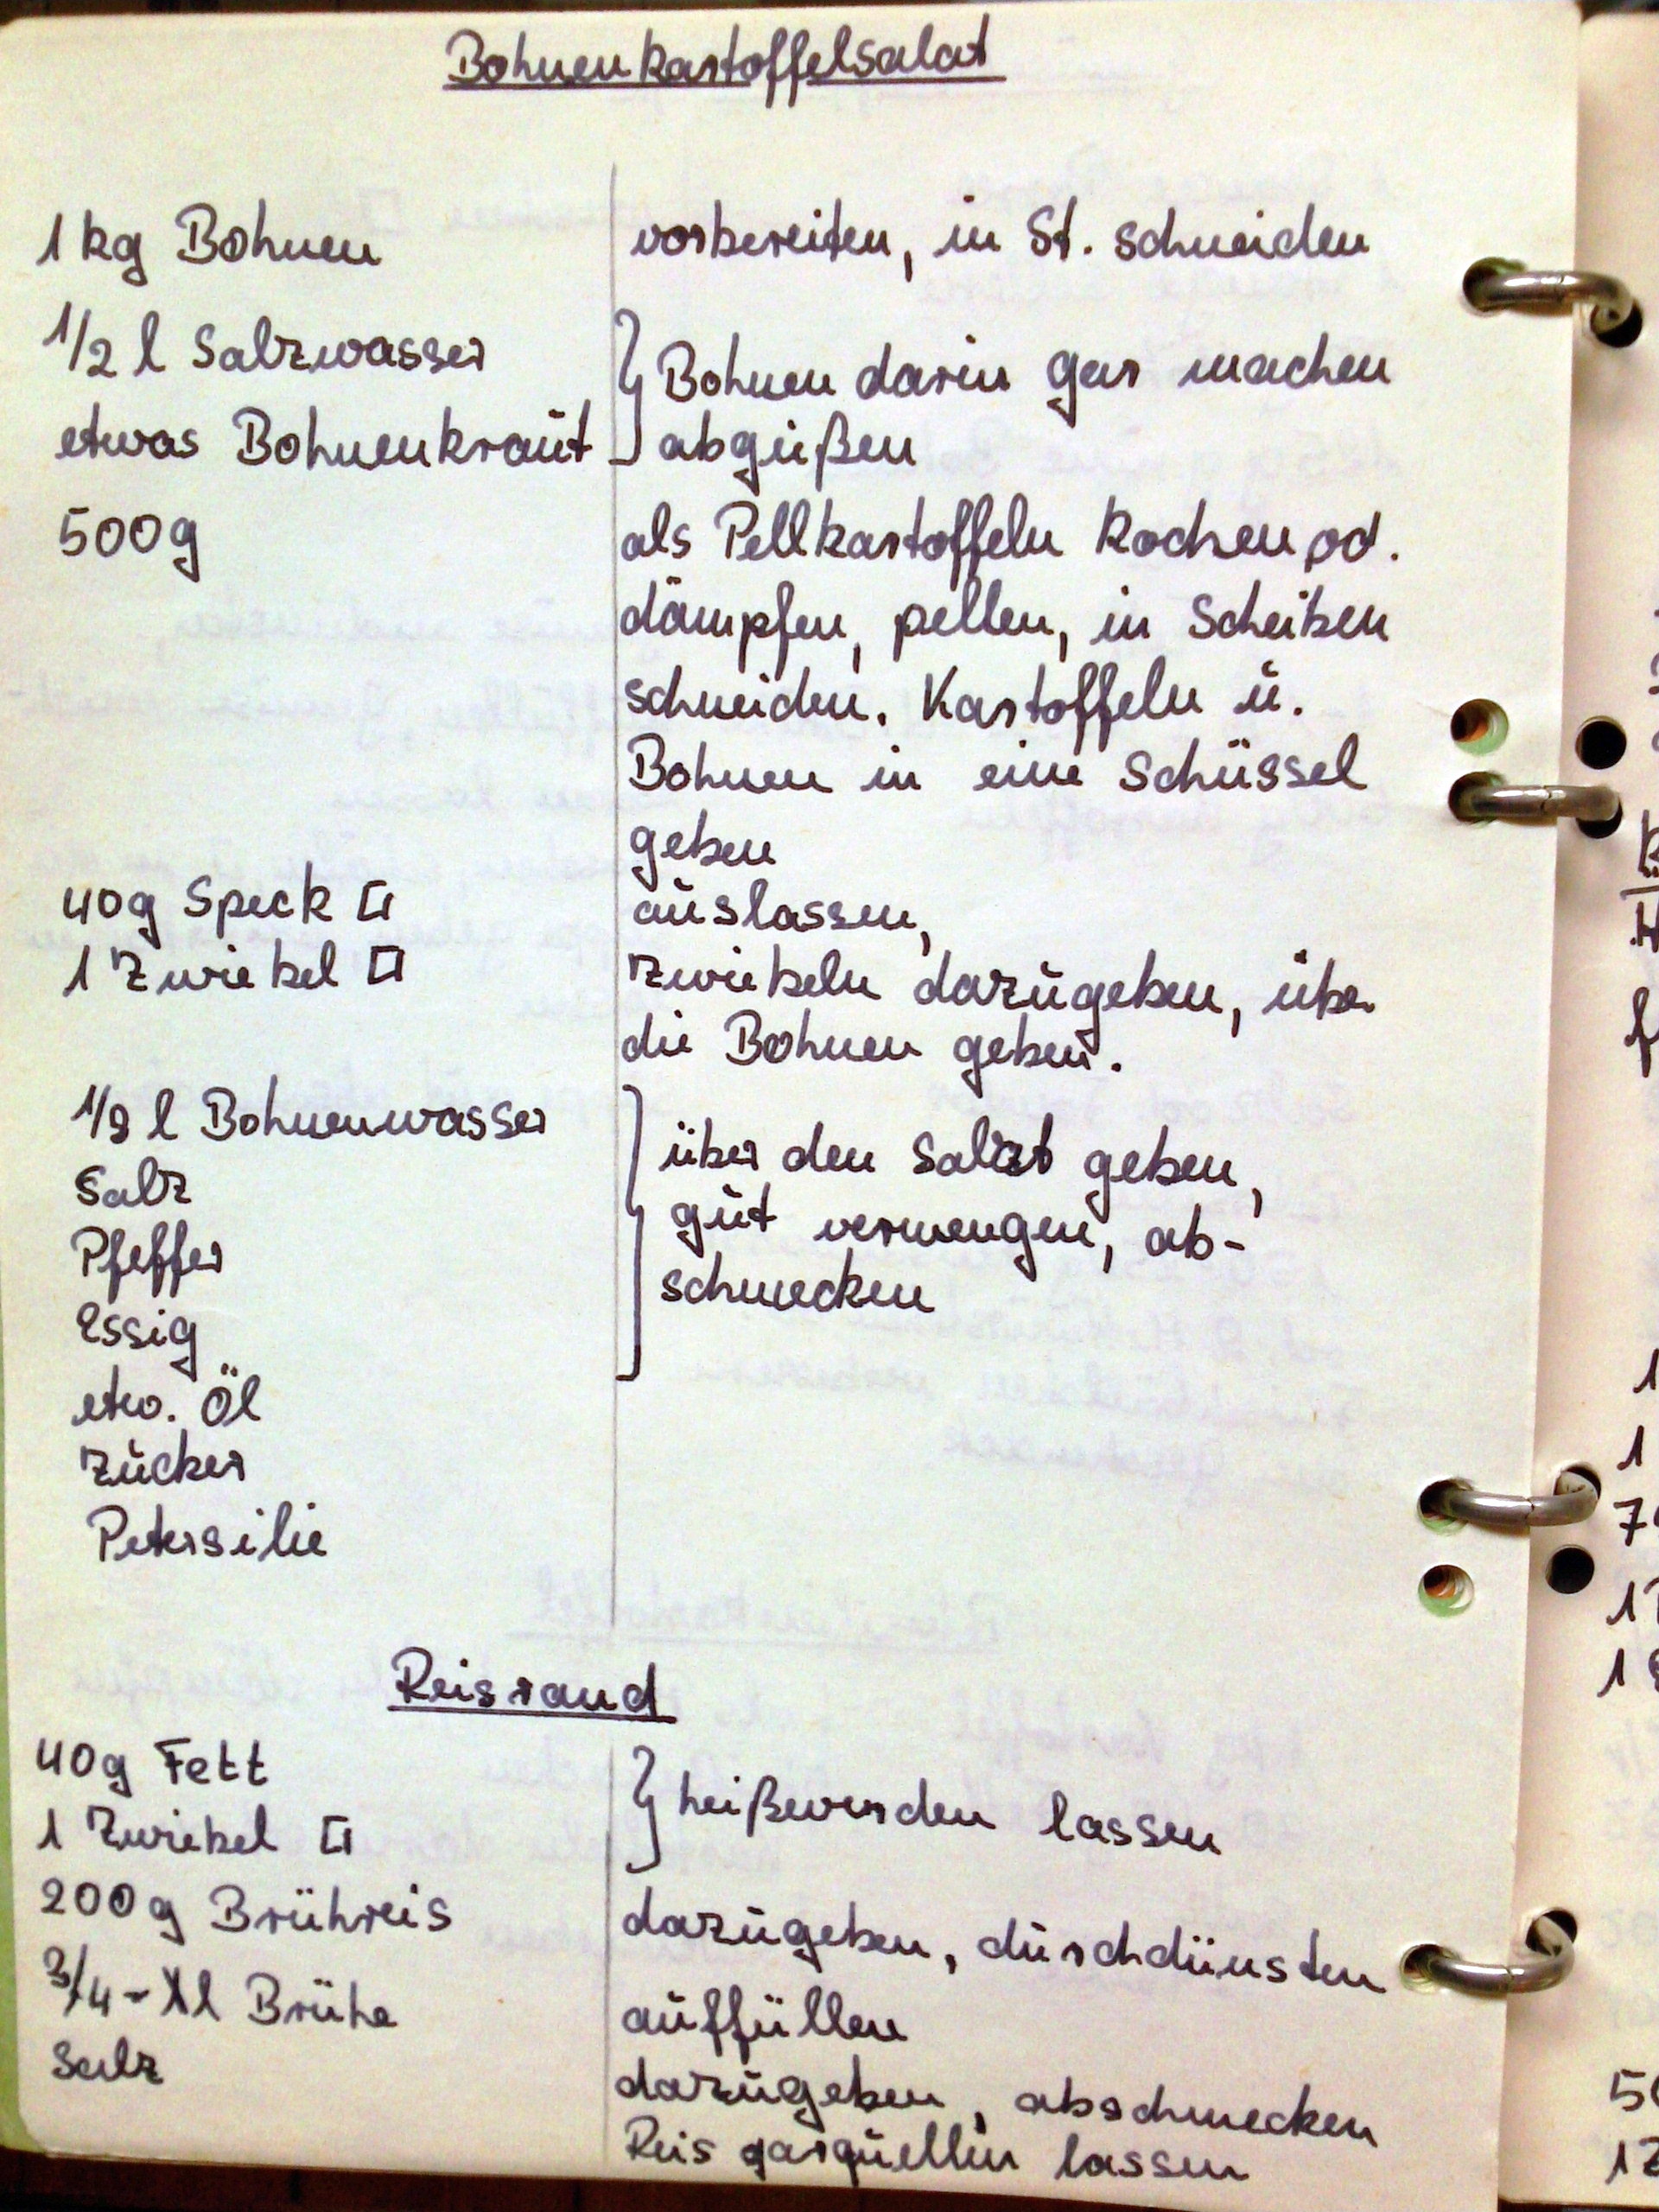 Bohnenkartoffelsalat
1 kg Bohnen vorbereiten, in St. schneiden
1/2 l Salzwasser } Bohnen darin gar machen
etwas Bohnenkraut abgießen
500g als Pellkartoffeln kochen od.
dämpfen, pellen, in Scheiben
schneiden. Kartoffeln u.
Bohnen in eine Schüssel
geben
40g Speck auslassen,
1 Zwiebel Zwiebeln dazugeben, über
die Bohnen geben.
1/8 l Bohnenwasser
Salz } über den Salat geben,
Pfeffer gut vermengen, ab-
Essig schmecken
etw. Öl
Zucker
Petersilie
Reisrand
40g Fett } heißwerden lassen
1 Zwiebel
200g Brühreis dazugeben, durchdünsten
3/4 - 1 l Brühe auffüllen
Salz dazugeben, abschmecken
Reis garquellen lassen